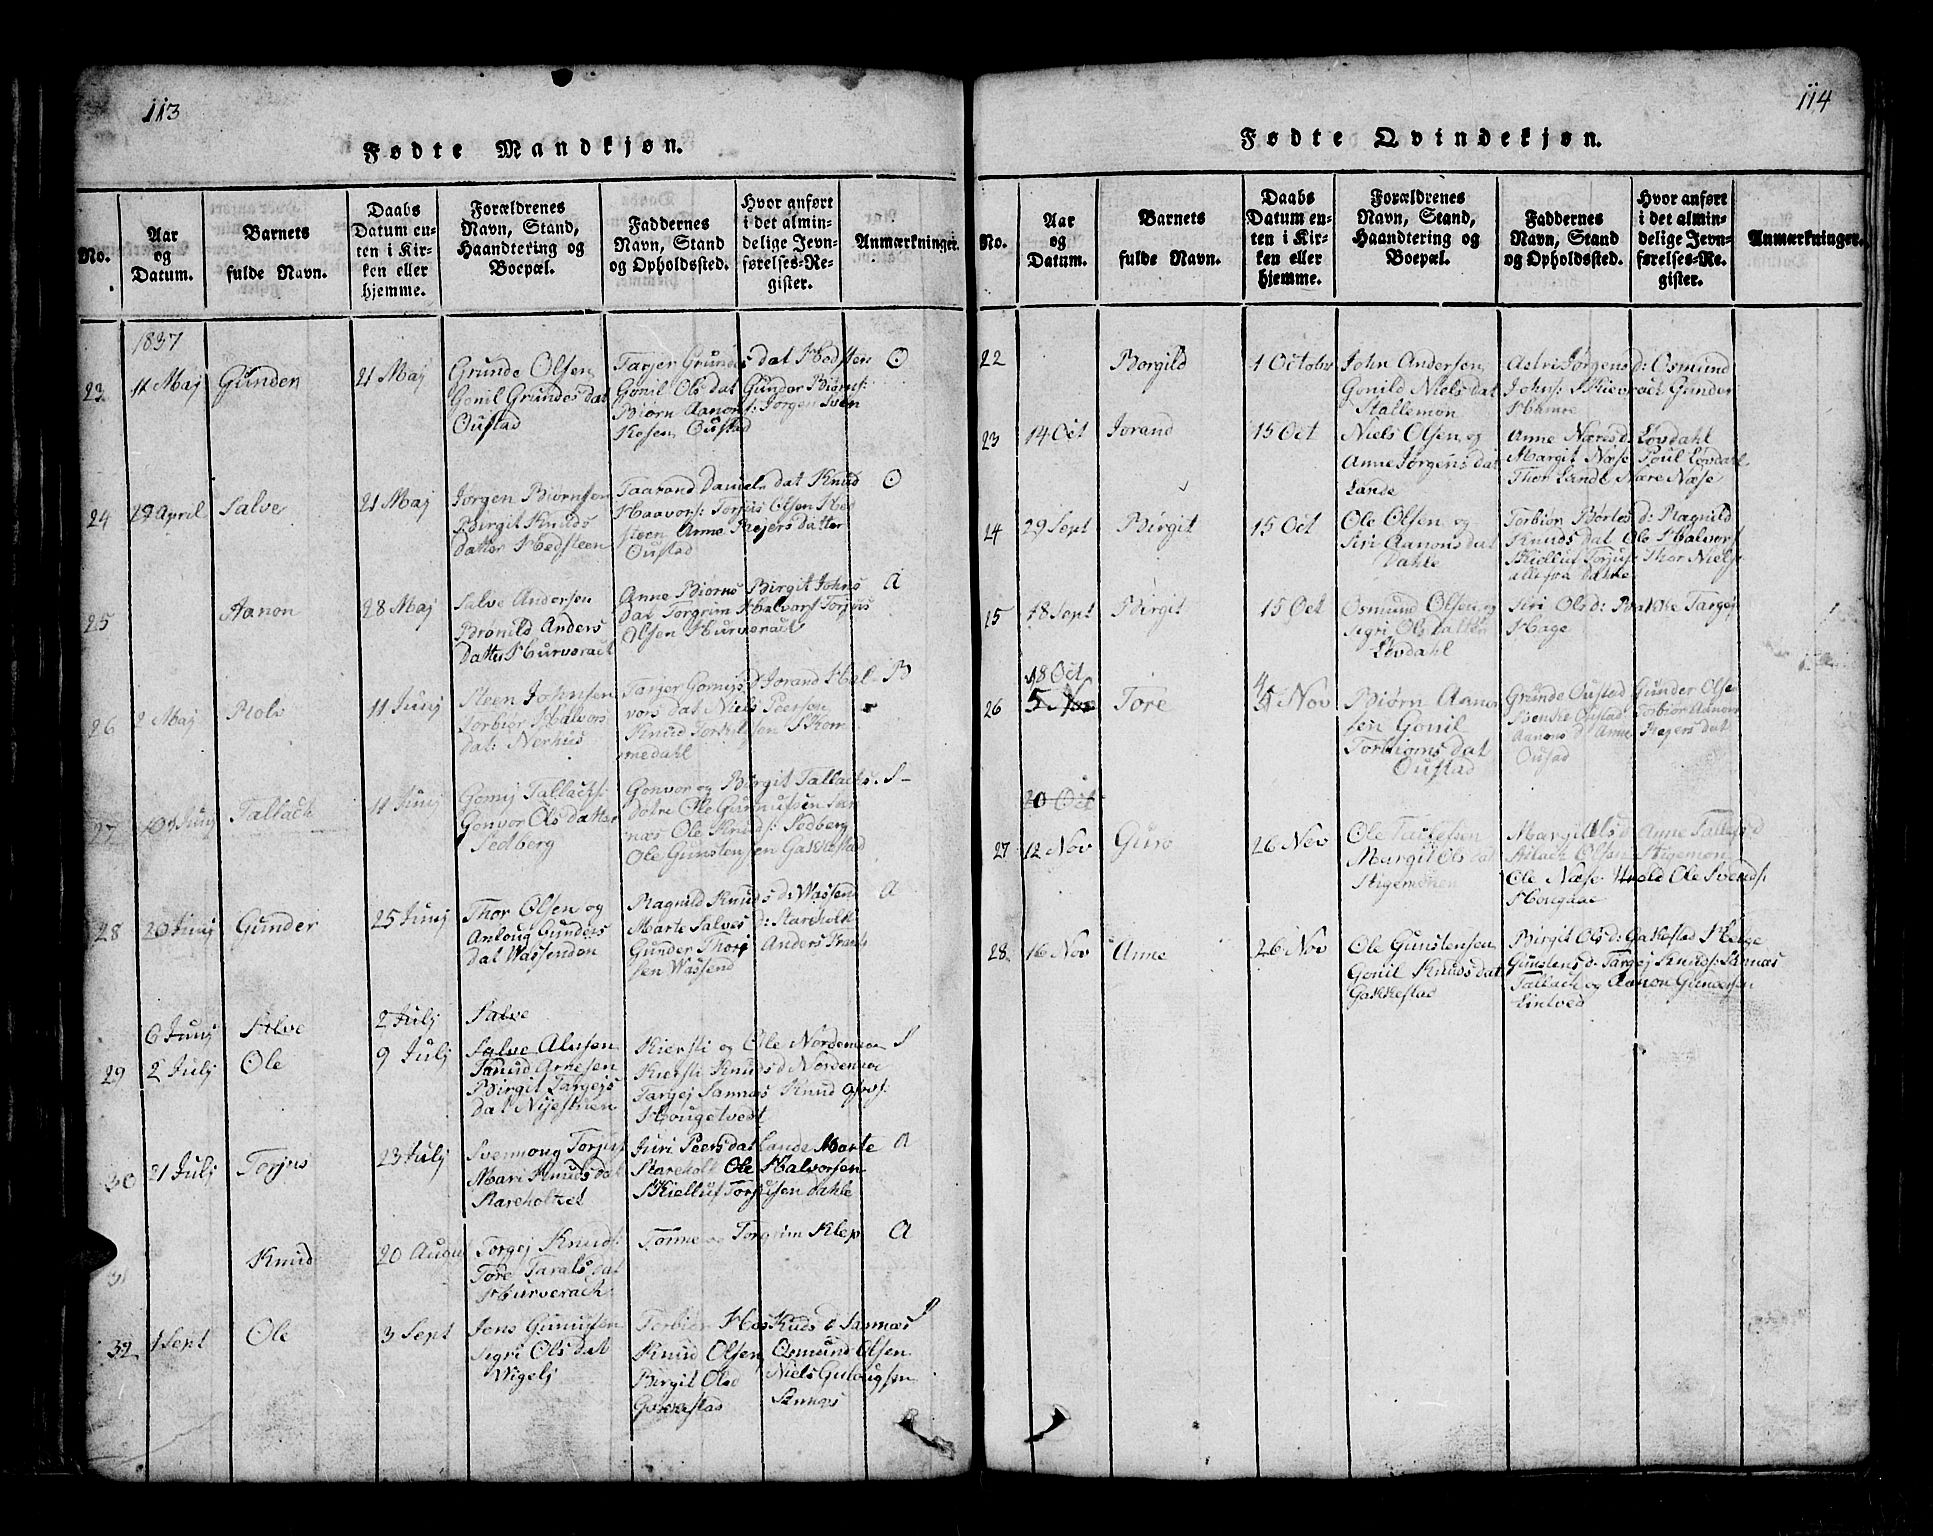 113
Fødte Mandkjøn.
No.
Aar
og
Datum.
Barnets
fulde Navn.
Daabs
Datum en-
ten i Kir-
ken eller
hjemme.
Forældrenes
Navn, Stand,
Haandtering og
Boepæl.
Faddernes
Navn, Stand
og Opholdssted.
Hvor anført
i det almin-
delige Jevn-
førelses-Re-
gister.
Anmærkninger.
1837
23
11 Maj
Gunden
21 Maj
Grunde Olsen
Gonil Grundes dat
Oustad
Tarjer Grundes dat Hedsteen
Gonil Ols dat Gunder Biørns:
Biørn Aanons: Jørgen Sven
Kosen Oustad
O
24
April
Salve
21 Maj
Jørgen Biørnsen
Birgit Knuds
Datter Hedsteen
Taarand Daniels dat Knud
Haavors: Torjus Olsen Hed
steen Anne Rejers datter
Oustad
O
25
Aanon
28 Maj
Salve Andersen
Brønild Anders
Datter Hurverach
Anne Biørns Birgit Johns
Dat Torgrim Halvors Torjus
Olsen Hurverach
A
26
2 Maj
Rolv
11 Junj
Steen Johnsen
Torbiør Halvors
dat: Nerhus
Tarjer Gomijs D Jorand Hal-
vors dat Niels Peersen
Knud Torkilsen Skom
medahl
B
27
Junj
Tallach
11 Junj
Gomij Tallachs:
Gonvor Ols datter
Sedberg
Gonvor og Birgit Tallachs.
Døtre Ole Gunnufsen San
næs Ole Knuds: Sedberg
Ole Gunstensen Gakkestad
S-
28
20 Junj
Gunder
25 Junj
Thor Olsen og
Anloug Gunders
dat Wassenden
Ragnild Knuds d: Wassend
Marte Salves d: Stareholt
Gunder Thorj Anders Truls
sen Wassend
A
6 Junj
Salve
2 Julj
Salve
29
2 Julj
Ole
9 Julj
Salve Alufsen
Knud Arnesen
Birgit Targejs
Dat Nijestuen
Kiersti og Ole Nordemoe
Kiersti Knuds d Nordemoe
Targej Sannæs Knud Osvs:
Hougetvedt
S
30
21 Julj
Torjus
23 Julj
Svennoug Torjus
Mari Knuds dat
Stareholtet
Juri Peersdat Lande Marte
Stareholt Ole Halvorsen
Skielluf Torjusen Dahle
A
31
Knud
20 August
Torgej Knuds:
Tore Taralsdat
Hurverach
Tonne og Torgrim Klep
A
32
1 Sept
Ole
3 Sept
Jens Gunufsen
Segri Ols dat
Wigelj
Torbiør Høs Kuds d Sannæs
Knud Olsen Osmund Olsen
Birgit Olsd Niels Gulougsøn
Gakkestad Sannæs
114
Fødte Qvindekjøn.
No.
Aar
og
Datum.
Barnets
fulde Navn.
Daabs
Datum en-
ten i Kir-
ken eller
hjemme.
Forældrenes
Navn, Stand,
Haandtering og
Boepæl.
Faddernes
Navn, Stand
og Opholdssted.
Hvor anført
i det almin-
delige Jevn-
førelses-Re-
gister.
Anmærkninger.
22
Borgild
1 Octobr
John Andersen
Gonild Niels dat
Stallemon
Astri Jørgens d: Osmund
Johns: Skieverach Gunder
Hamre
23
14 Oct
Jorand
15 Oct
Niels Olsen og
Anne Jørgens dat
Lande
Anne Næres d: Løvdahl
Margit Næse Poul Løvdahl
Thor Lande Nære Næse
24
29 Sept
Birgit
15 Oct
Ole Olsen og
Siri Aanons dat
Dahle
Torbiør Børtes d: Ragnild
Knuds dat Ole Halvors:
Skielluf Torjus: Thor Niels:
alle fra Dahle
25
18 Sept
Birgit
15 Oct
Osmund Olsen og
Segri Ols datter
Løvdahl
Siri Ols d: Bakke Targej
Hage
26
18 Oct
5 Nov
Tore
5 Nov
Biørn Aanon
sen Gonil
Torbiørns dat
Oustad
Grunde Oustad Gunder Olse
Sienke Oustad Torbiør Aanon
Aanons d Anne Rejers dat
Oustad
20 Oct
27
12 Nov
Guro
26 Nov
Ole Tallefsen
Margit Ols dat
Stigemonen
Margit Ols d: Anne Tallefs d
Stilach Olsen Stigemon
Ole Næse Ole Svends:
Hovgdal
28
16 Nov
Anne
26 Nov
Ole Gunstensen
Gonil Knuds dat
Gakkestad
Birgit Ols d: Gakkestad Helge
Gunstens d. Targej Knuds: Sannæs
Tallach og Aanon Gundersen
Lintved